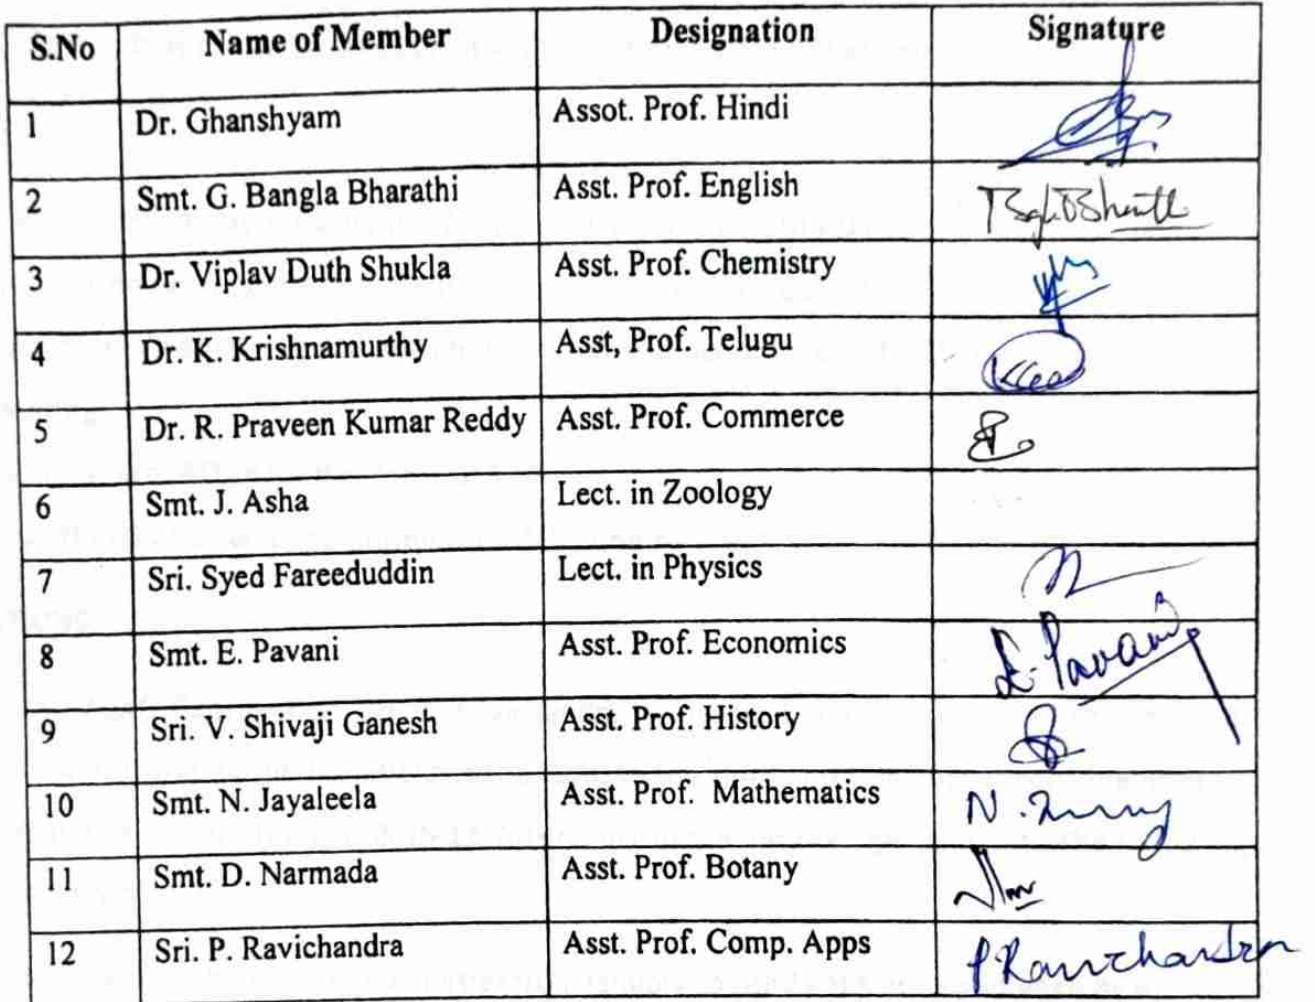 S.No Name of Member Designation Signature
1 Dr. Ghanshyam Assot. Prof. Hindi
2 Smt. G. Bangla Bharathi Asst. Prof. English
3 Dr. Viplav Duth Shukla Asst. Prof. Chemistry
4 Dr. K. Krishnamurthy Asst, Prof. Telugu
5 Dr. R. Praveen Kumar Reddy Asst. Prof. Commerce
6 Smt. J. Asha Lect. in Zoology
7 Sri. Syed Fareeduddin Lect. in Physics
8 Smt. E. Pavani Asst. Prof. Economics E. Pavani
9 Sri. V. Shivaji Ganesh Asst. Prof. History
10 Smt. N. Jayaleela Asst. Prof. Mathematics N.
11 Smt. D. Narmada Asst. Prof. Botany
12 Sri. P. Ravichandra Asst. Prof. Comp. Apps P Ravichandra